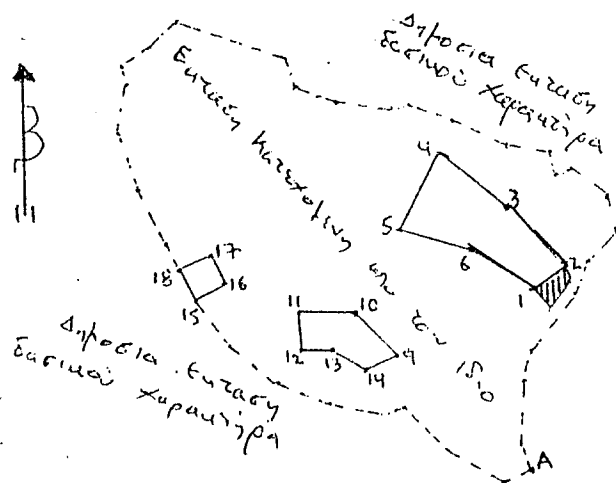 Δημοσια έκταση
δασικού χαρακτήρα
Εκταση κατεχομενη απο τον ίδιο
Β
4
3
5
6
2
1
17
18
16
15
11
10
12
13
9
14
Δημοσια έκταση
δασικού χαρακτήρα
Α